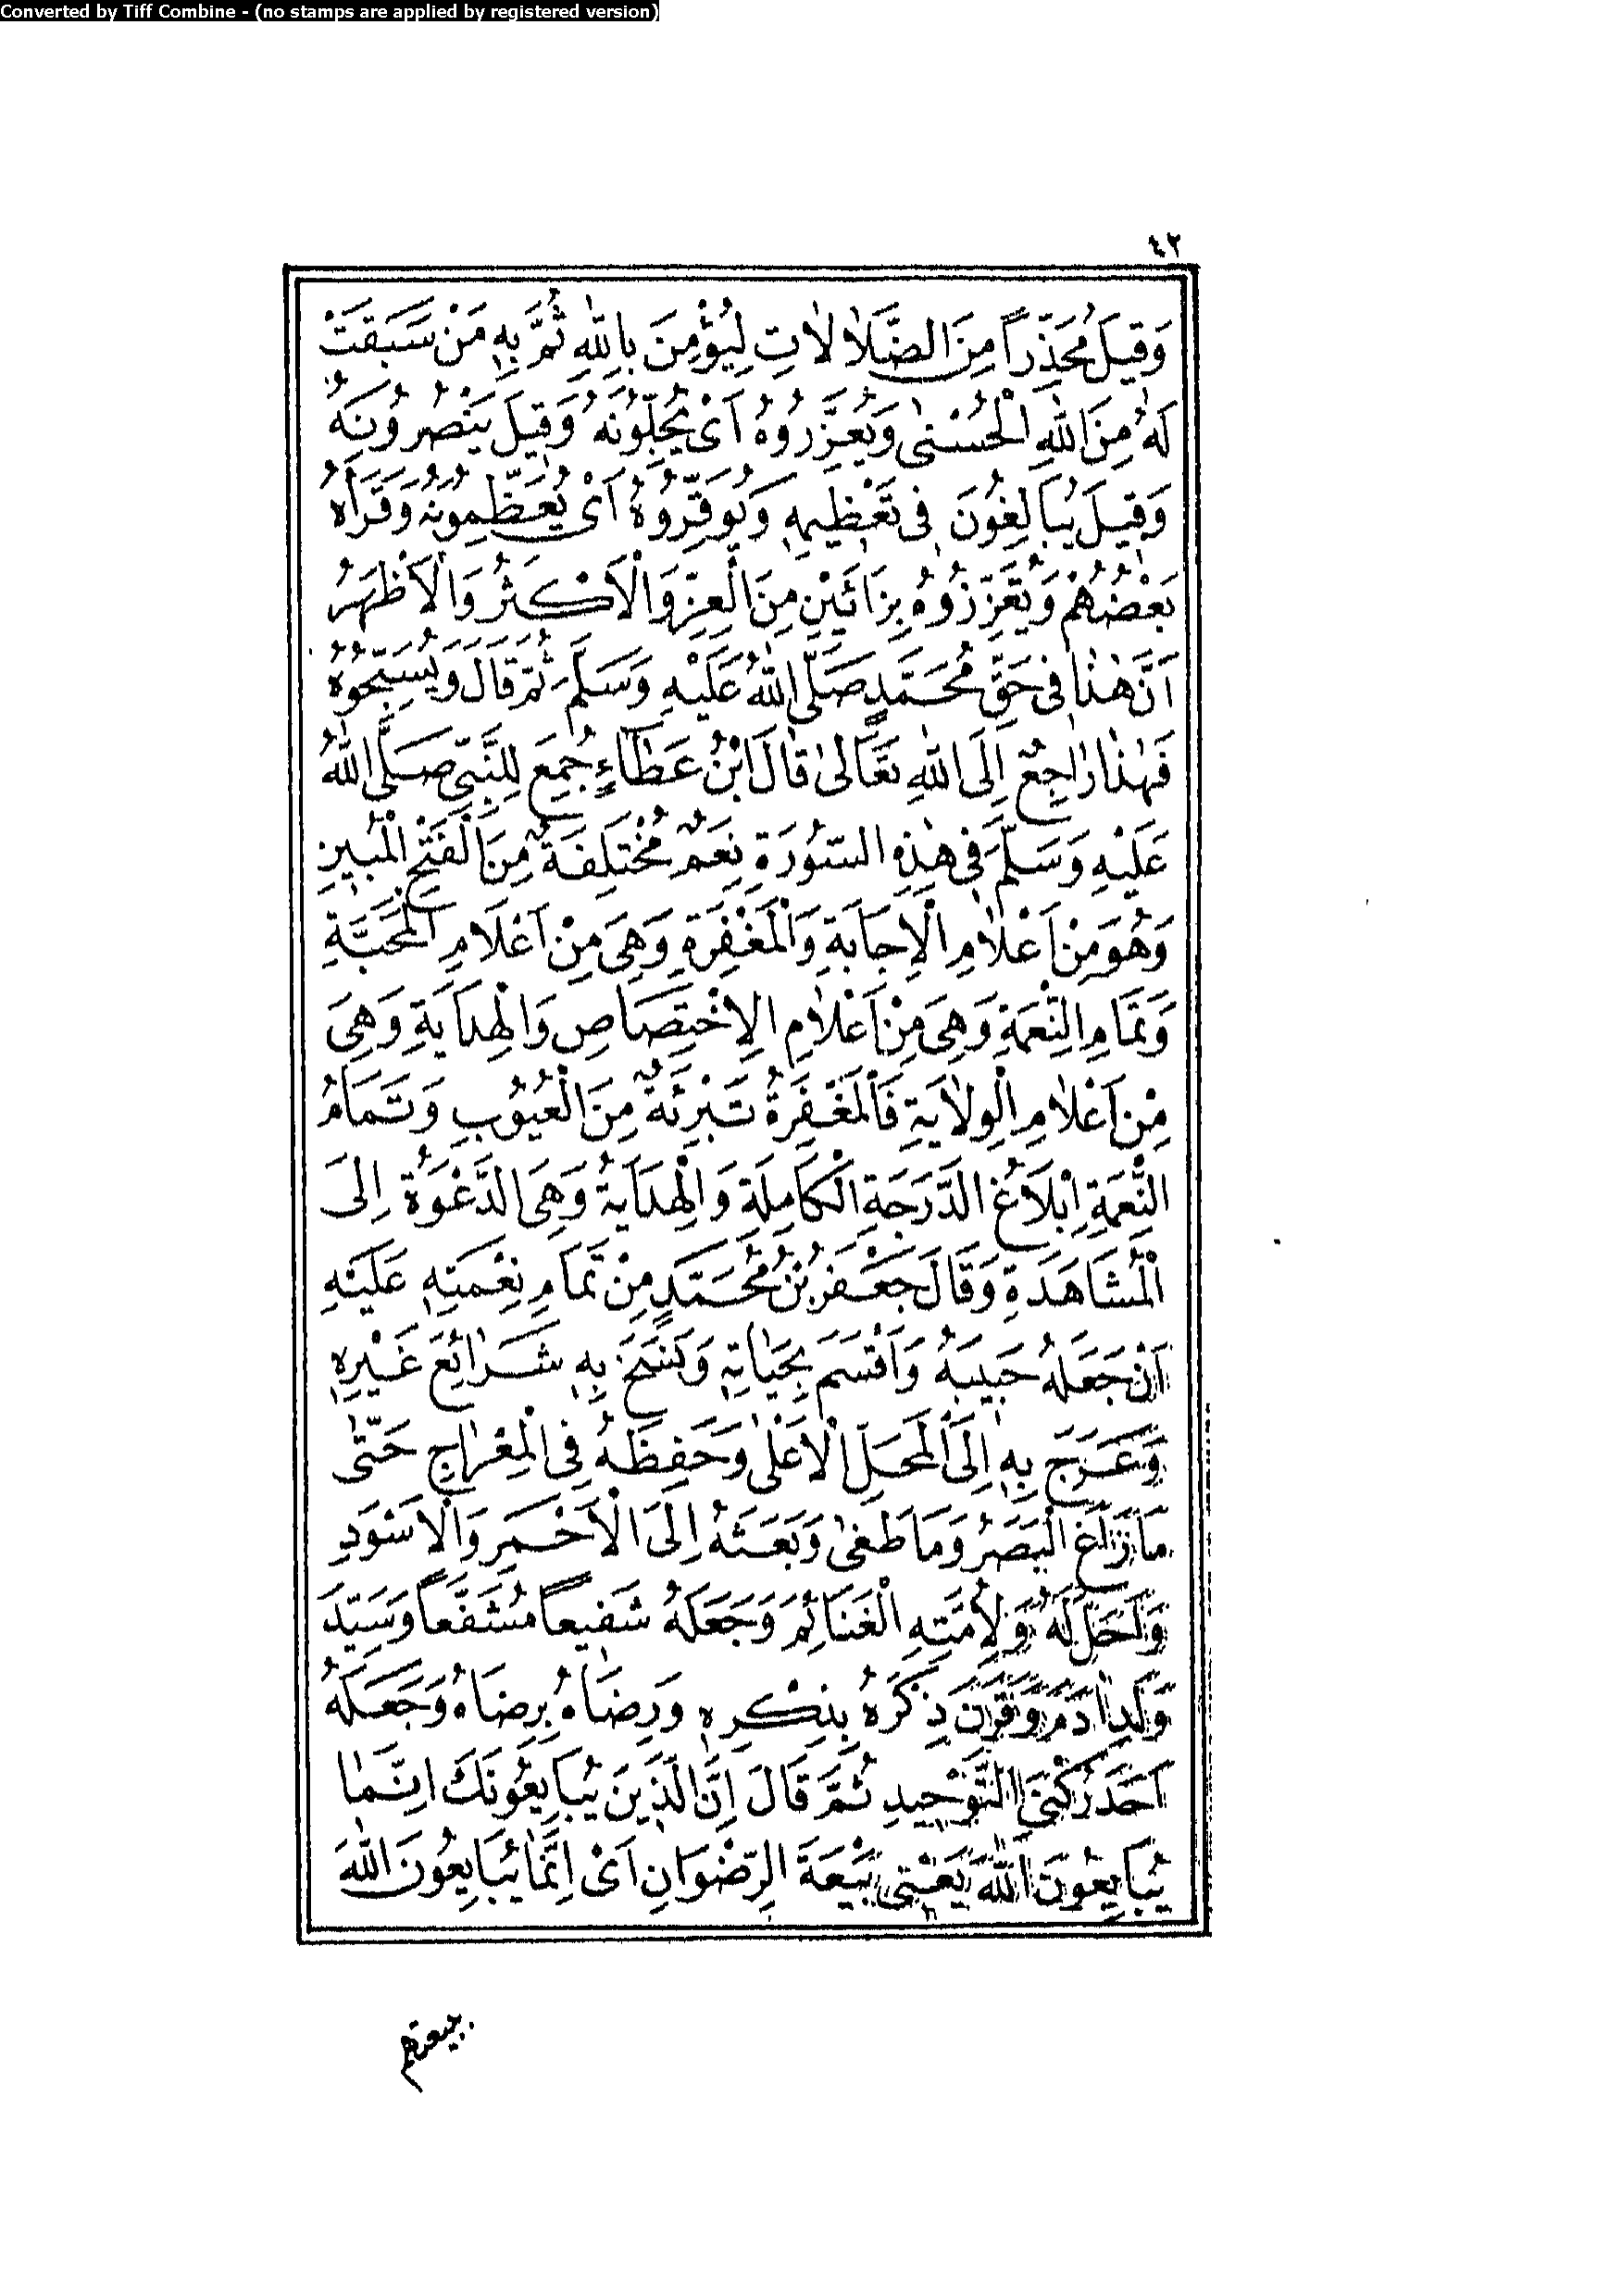 Converted by Tiff Combine - (no stamps are applied by registered version)
٤٢
وَقِيلَ مُحَذِّراً مِنَ الضَّلَالَاتِ لِيُؤْمِنَ بِاللّٰهِ ثُمَّ بِهِ مَنْ سَبَقَتْ
لَهُ مِنَ اللّٰهِ الْحُسْنٰى وَيُعَزِّرُوهُ اَىْ يُجِلُّونَهُ وَقِيلَ يَنْصُرُونَهُ
وَقِيلَ يُبَالِغُونَ فِى تَعْظِيمِهِ وَيُوَقِّرُوهُ اَىْ يُعَظِّمُونَهُ وَقَرَأَهُ
بَعْضُهُمْ وَيُعَزِّزُوهُ بِزَائَيْنِ مِنَ الْعِزِّ وَالْاَكْثَرُ وَالْاَظْهَرُ
اَنَّ هٰذَا فِى حَقِّ مُحَمَّدٍ صَلَّى اللّٰهُ عَلَيْهِ وَسَلَّمَ ثُمَّ قَالَ وَيُسَبِّحُوهُ
فَهٰذَا رَاجِعٌ اِلَى اللّٰهِ تَعَالٰى قَالَ ابْنُ عَطَاءٍ جُمِعَ لِلنَّبِىِّ صَلَّى اللّٰهُ
عَلَيْهِ وَسَلَّمَ فِى هٰذِهِ السُّورَةِ نِعَمٌ مُخْتَلِفَةٌ مِنَ الْفَتْحِ الْمُبِينِ
وَهُوَ مِنْ اَعْلَامِ الْاِجَابَةِ وَالْمَغْفِرَةِ وَهِىَ مِنْ اَعْلَامِ الْمَحَبَّةِ
وَتَمَامِ النِّعْمَةِ وَهِىَ مِنْ اَعْلَامِ الِاخْتِصَاصِ وَالْهِدَايَةِ وَهِىَ
مِنْ اَعْلَامِ الْوِلَايَةِ فَالْمَغْفِرَةُ تَبْرِئَةٌ مِنَ الْعُيُوبِ وَتَمَامُ
النِّعْمَةِ اِبْلَاغُ الدَّرَجَةِ الْكَامِلَةِ وَالْهِدَايَةُ وَهِىَ الدَّعْوَةُ اِلَى
الْمُشَاهَدَةِ وَقَالَ جَعْفَرُ بْنُ مُحَمَّدٍ مِنْ تَمَامِ نِعْمَتِهِ عَلَيْهِ
اَنْ جَعَلَهُ حَبِيبَهُ وَاَقْسَمَ بِحَيَاتِهِ وَنَسَخَ بِهِ شَرَائِعَ غَيْرِهِ
وَعَرَجَ بِهِ اِلَى الْمَحَلِّ الْاَعْلٰى وَحَفِظَهُ فِى الْمِعْرَاجِ حَتّٰى
مَا زَاغَ الْبَصَرُ وَمَا طَغٰى وَبَعَثَهُ اِلَى الْاَحْمَرِ وَالْاَسْوَدِ
وَاَحَلَّ لَهُ وَلِاُمَّتِهِ الْغَنَائِمَ وَجَعَلَهُ شَفِيعاً مُشَفَّعاً وَسَيِّدَ
وَلَدِ اٰدَمَ وَقَرَنَ ذِكْرَهُ بِذِكْرِهِ وَرِضَاهُ بِرِضَاهُ وَجَعَلَهُ
اَحَدَ رُكْنَىِ التَّوْحِيدِ ثُمَّ قَالَ اِنَّ الَّذِينَ يُبَايِعُونَكَ اِنَّمَا
يُبَايِعُونَ اللّٰهَ يَعْنِى بَيْعَةَ الرِّضْوَانِ اَىْ اِنَّمَا يُبَايِعُونَ اللّٰهَ
ببيعتهم